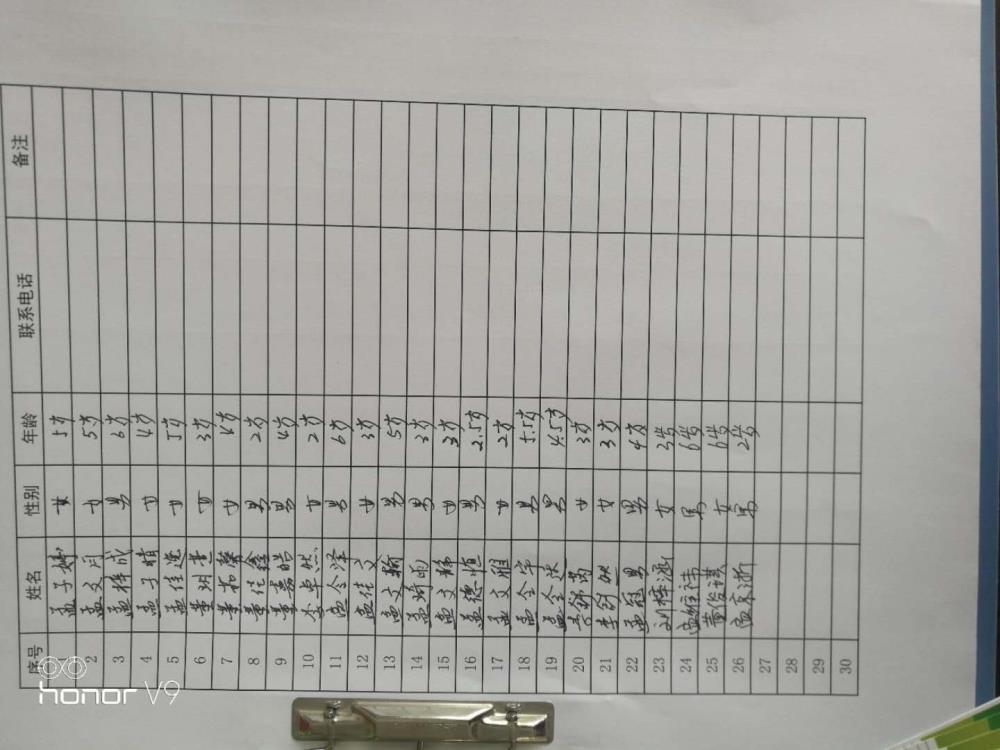 序号 姓名 性别 年龄 联系电话 备注
1 孟子 女 5岁
2 孟文月 女 5岁
3 孟梓成 男 6岁
4 孟子晴 女 4岁
5 孟佳逸 女 5岁
6 董 女 3岁
7 董拓馨 女 4岁
8 董佳鑫 男 2岁
9 董嘉皓 男 4岁
10 李卓然 女 2岁
11 孟令泽 男 6岁
12 孟佳文 女 3岁
13 孟文翰 男 5岁
14 孟 雨 男 3岁
15 孟文静 女 3岁
16 孟德恒 男 2.5岁
17 孟文雅 女 2岁
18 孟令宇 男 5.5岁
19 孟令 男 4.5岁
20 女 3岁
21 李舒 女 3岁
22 孟冠男 男 4岁
23 刘梓涵 女 3岁
24 孟维 男 6岁
25 董俊祺 女 6岁
26 孟东浙 男 2岁
27
28
29
30
honor V9